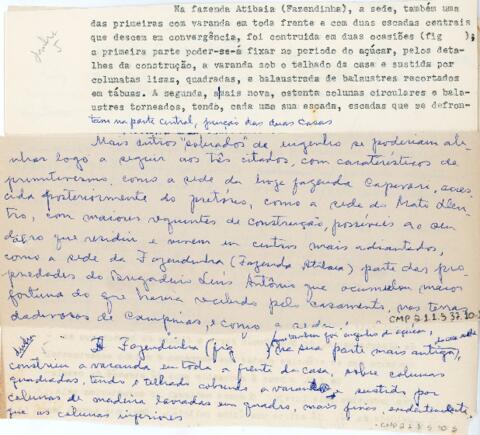 Na fazenda Atibaia (Fazendinha), a sede, também uma
das primeiras com varanda em toda frente e com duas escadas centrais
que descem em convergência, foi contruida em duas ocasiões (fig );
a primeira parte poder-se-á fixar no periodo do açúcar, pelos deta-
lhes da construção, a varanda sob o telhado da casa e sustida por
colunatas lisas, quadradas, e balaustrada de balaustres recortados
em tábuas. A segunda, mais nova, ostenta colunas circulares e bala-
ustres torneados, tendo, cada uma sua escada, escadas que se defron-
tam na parte central, junção das duas casas
Mais outros "sobrados" de engenho se poderiam ali-
nhar logo a seguir aos três citados, com caraterísticos de
primitivismo como a sede da hoje fazenda Capivari, acres-
cida posteriormente do pretório, como a sede do Mato Den-
tro, com maiores requintes de construção, possíveis ao seu
dono que residiu e em centros mais adiantados,
como a sede da Fazendinha (Fazenda Atibaia) parte das pro-
priedades do Brigadeiro Luís Antônio que acumulou maior
fortuna do que havia recebido pelo casamento, nas terras
dadivosas de Campinas, e como a sede
CMP 2.1.1.5.37.10-
que tambem foi engenho de açúcar,
Fazendinha (fig ) na sua parte mais antiga,
construiu a varanda em toda a frente da casa, sobre colunas
quadradas, tendo o telhado cobrindo a varanda e sustido por
colunas de madeira lavradas em quadro, mais finas,
que as colunas inferiores